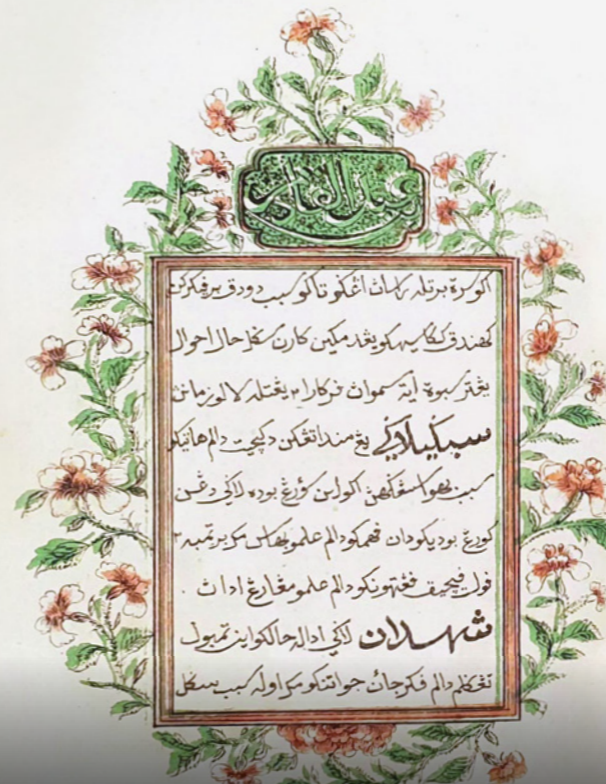 عبد القادر
اكو سرة برتله راسان اڠنكو تاكو سبب دودق برفيكركن
كهندق ككاسيه كويڠدمكين كارن سكل حال احوال
يڠترسبوة ايت سموان فركارا٢ يڠتله لالو زمانن
سبݢيلاݢي يڠ منداتڠكن دالم هاتيكو
سبب بهوا سڠكهن اكو اين اورڠ بوده لاكي دڠن
كورڠ بوديكو دان فهمكو دالم علمو بهاس مك برتمبه٢
فول فيچيق فڠتهونكو دالم علمو مڠارڠ ادان
شهدان لاكي اداله حالكو اين تمبول
تڠكلم دالم فكرجاءن جواتنكو مك اوله سبب سكل